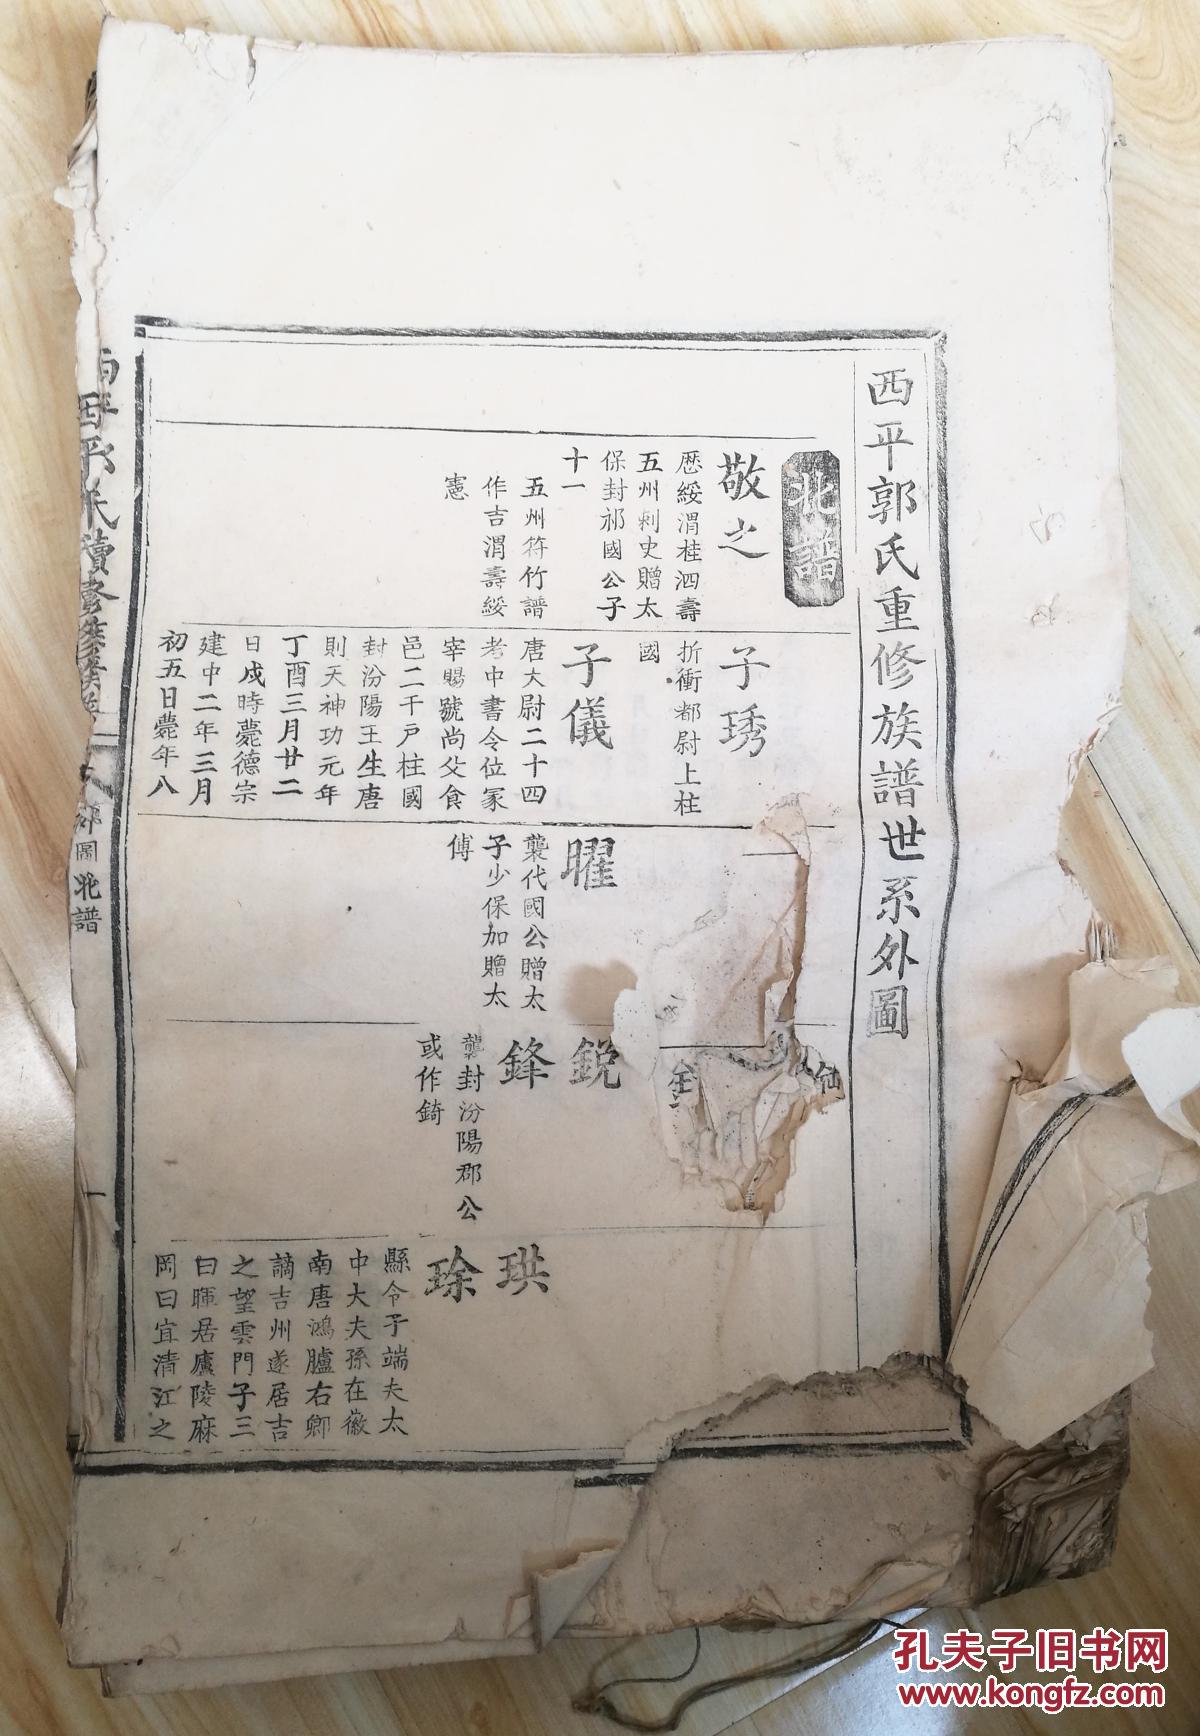 西平郭氏重修族譜世系外圖
北譜
敬之
歷綏渭桂泗壽
五州刺史贈太
保封祁國公子
十一
五州符竹譜
作吉渭壽綏
憲
子琇
折衝都尉上柱
國
子儀
唐大尉二十四
考中書令位冢
宰賜號尚父食
邑二千戶柱國
封汾陽王生唐
則天神功元年
丁酉三月廿二
日戍時薨德宗
建中二年三月
初五日薨年八
曜
襲代國公贈太
子少保加贈太
傅
銳
鋒
襲封汾陽郡公
或作錡
珙
珍
縣令子端夫太
中大夫孫在徽
南唐鴻臚右卿
謫吉州遂居吉
之望雲門子三
曰暉居廬陵麻
岡曰宜清江之
圖北譜
一
孔夫子旧书网
www.kongfz.com